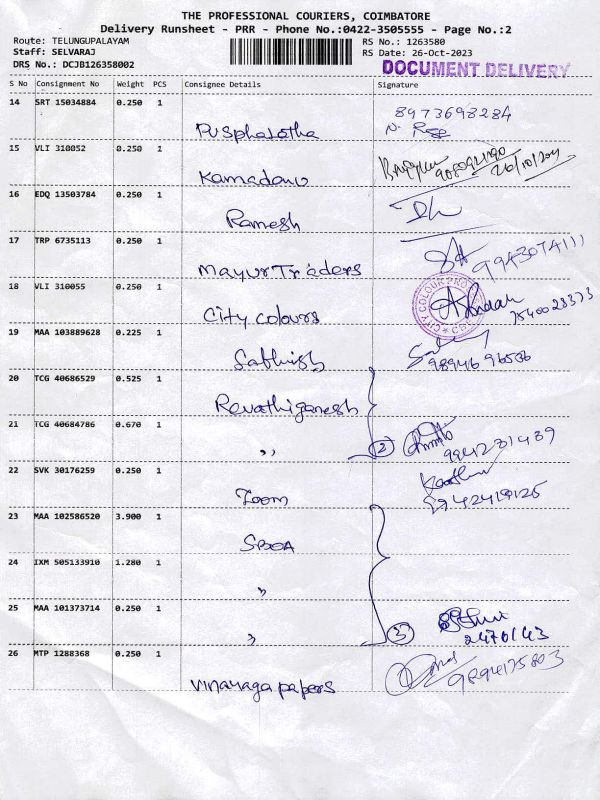 THE PROFESSIONAL COURIERS, COIMBATORE
Delivery Runsheet - PRR - Phone No.:0422-3505555 - Page No.:2
Route: TELUNGUPALAYAM
Staff: SELVARAJ
DRS No.: DCJB126358002
RS No.: 1263580
RS Date: 26-Oct-2023
DOCUMENT DELIVERY
S No Consignment No Weight PCS Consignee Details Signature
14 SRT 15034884 0.250 1
8973698284
Pusphalatha
15 VLI 310052 0.250 1
26/10/2011
Kamadanu
16 EDQ 13503784 0.250 1
Ramesh
17 TRP 6735113 0.250 1
Mayur Traders 9943074111
18 VLI 310055 0.250 1
City colours 7540028373
CITY COLOUR
19 MAA 103889628 0.225 1
Sathish 98946 96536
20 TCG 40686529 0.525 1
Revathiganesh
21 TCG 40684786 0.670 1
" 2 9941231439
22 SVK 30176259 0.250 1
Zoom
23 MAA 102586520 3.900 1
24 IXM 505133910 1.280 1
"
25 MAA 101373714 0.250 1
" 3 2470143
26 MTP 1288368 0.250 1
Vinayaga papers 9894175803